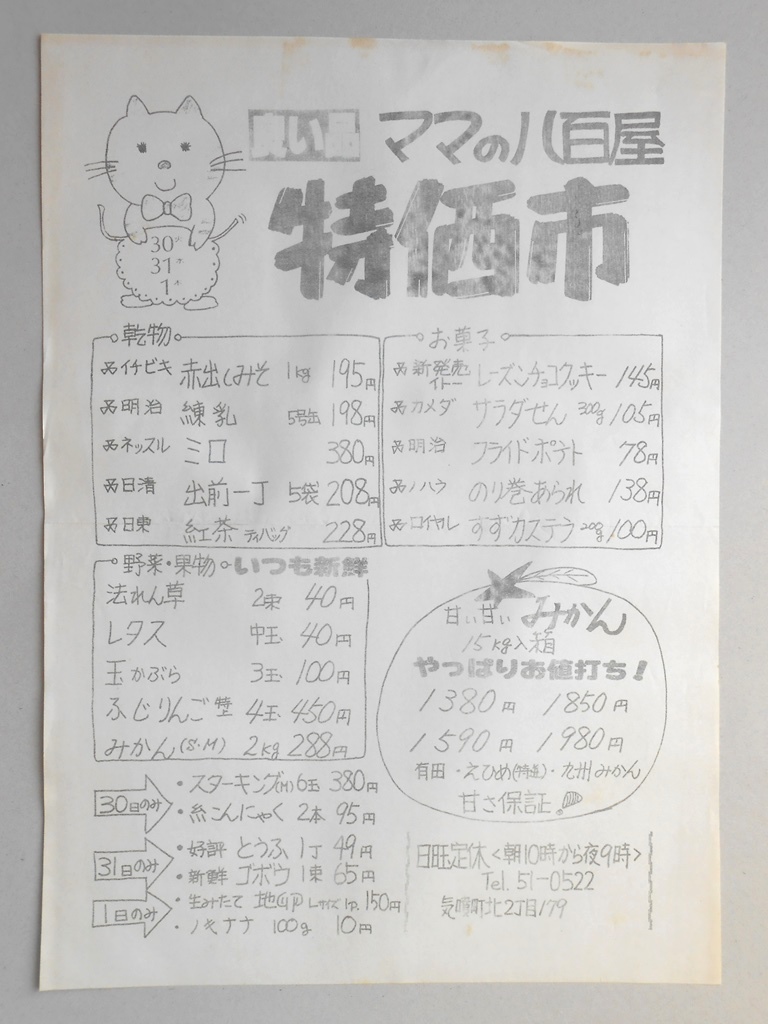 良い品 ママの八百屋
特価市
30火
31水
1木
乾物
イチビキ 赤出しみそ 1kg 195円
明治 練乳 5号缶 198円
ネッスル ミロ 380円
日清 出前一丁 5袋 208円
日東 紅茶 ティバッグ 228円
お菓子
新発売 イトー レーズンチョコクッキー 145円
カメダ サラダせん 300g 105円
明治 フライドポテト 78円
ノハラ のり巻あられ 138円
ロイヤル すずカステラ 200g 100円
野菜・果物 いつも新鮮
法れん草 2束 40円
レタス 中玉 40円
玉かぶら 3玉 100円
ふじりんご 4玉 450円
みかん(S・M) 2kg 288円
甘い甘い みかん
15kg入箱
やっぱりお値打ち!
1380円 1850円
1590円 1980円
有田・えひめ(特選)・九州みかん
甘さ保証
30日のみ
・スターキング(M)6玉 380円
・糸こんにゃく 2本 95円
31日のみ
・好評 とうふ 1丁 49円
・新鮮 ゴボウ 1束 65円
1日のみ
・生みたて 地卵 Lサイズ 1P. 150円
・バナナ 100g 10円
日曜定休<朝10時から夜9時>
Tel. 51-0522
町北2丁目179